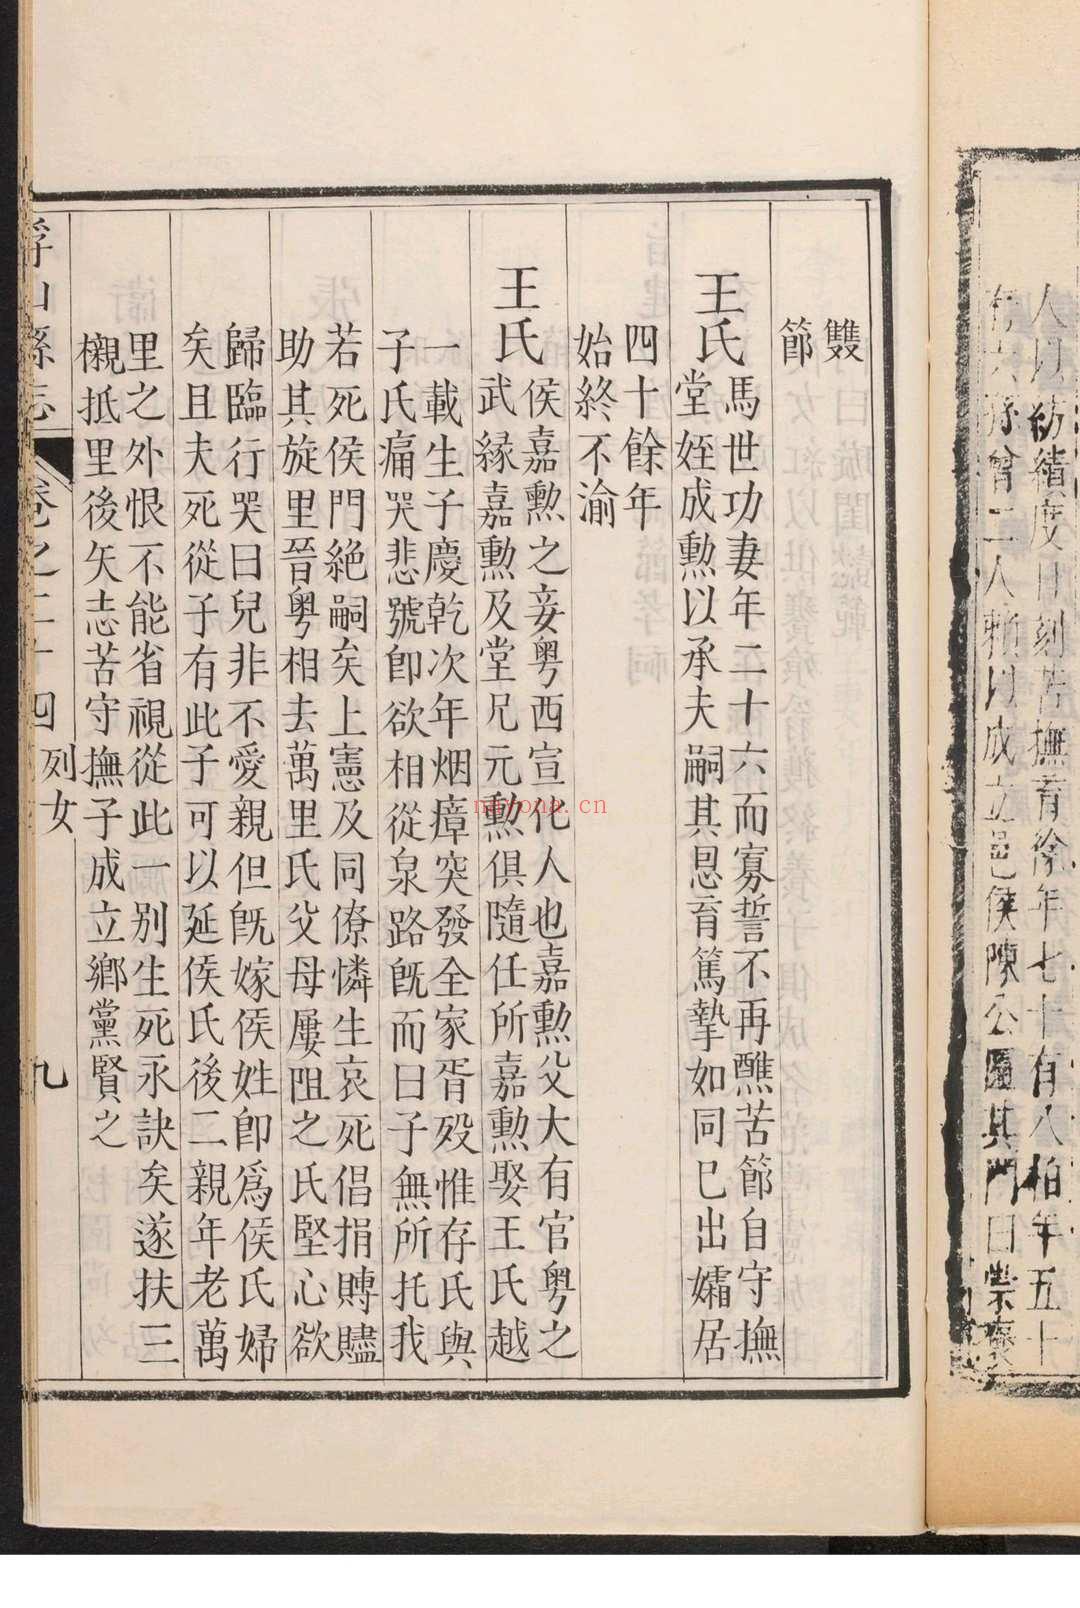 人以紡績度日刻苦撫育徐年七十有八柏年五十
有六孫曾二人賴以成立邑侯陳公匾其門曰崇褒
雙
節
王氏馬世功妻年二十六而寡誓不再醮苦節自守撫
堂姪成勲以承夫嗣其恩育篤摯如同已出孀居
四十餘年
始終不渝
王氏侯嘉勲之妾粤西宣化人也嘉勲父大有官粤之
武縁嘉勲及堂兄元勲俱隨任所嘉勲娶王氏越
一載生子慶乾次年烟瘴突發全家胥殁惟存氏與
子氏痛哭悲號卽欲相從泉路旣而曰子無所托我
若死侯門絶嗣矣上憲及同僚憐生哀死倡捐賻贐
助其旋里晉粤相去萬里氏父母屢阻之氏堅心欲
歸臨行哭曰兒非不愛親但旣嫁侯姓卽爲侯氏婦
矣且夫死從子有此子可以延侯氏後二親年老萬
里之外恨不能省視從此一别生死永訣矣遂扶三
櫬抵里後矢志苦守撫子成立鄉黨賢之
浮山縣志 卷之二十四 列女 九
nayona.cn